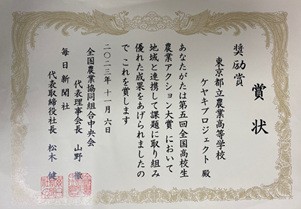 賞状
奨励賞
東京都立農業高等学校
ケヤキプロジェクト 殿
あなたがたは第五回全国高校生
農業アクション大賞において
地域と連携して課題に取り組み
優れた成果をあげられましたの
で これを賞します
二〇二三年十一月六日
全国農業協同組合中央会
代表理事会長 山野 徹
毎日新聞社
代表取締役社長 松木 健